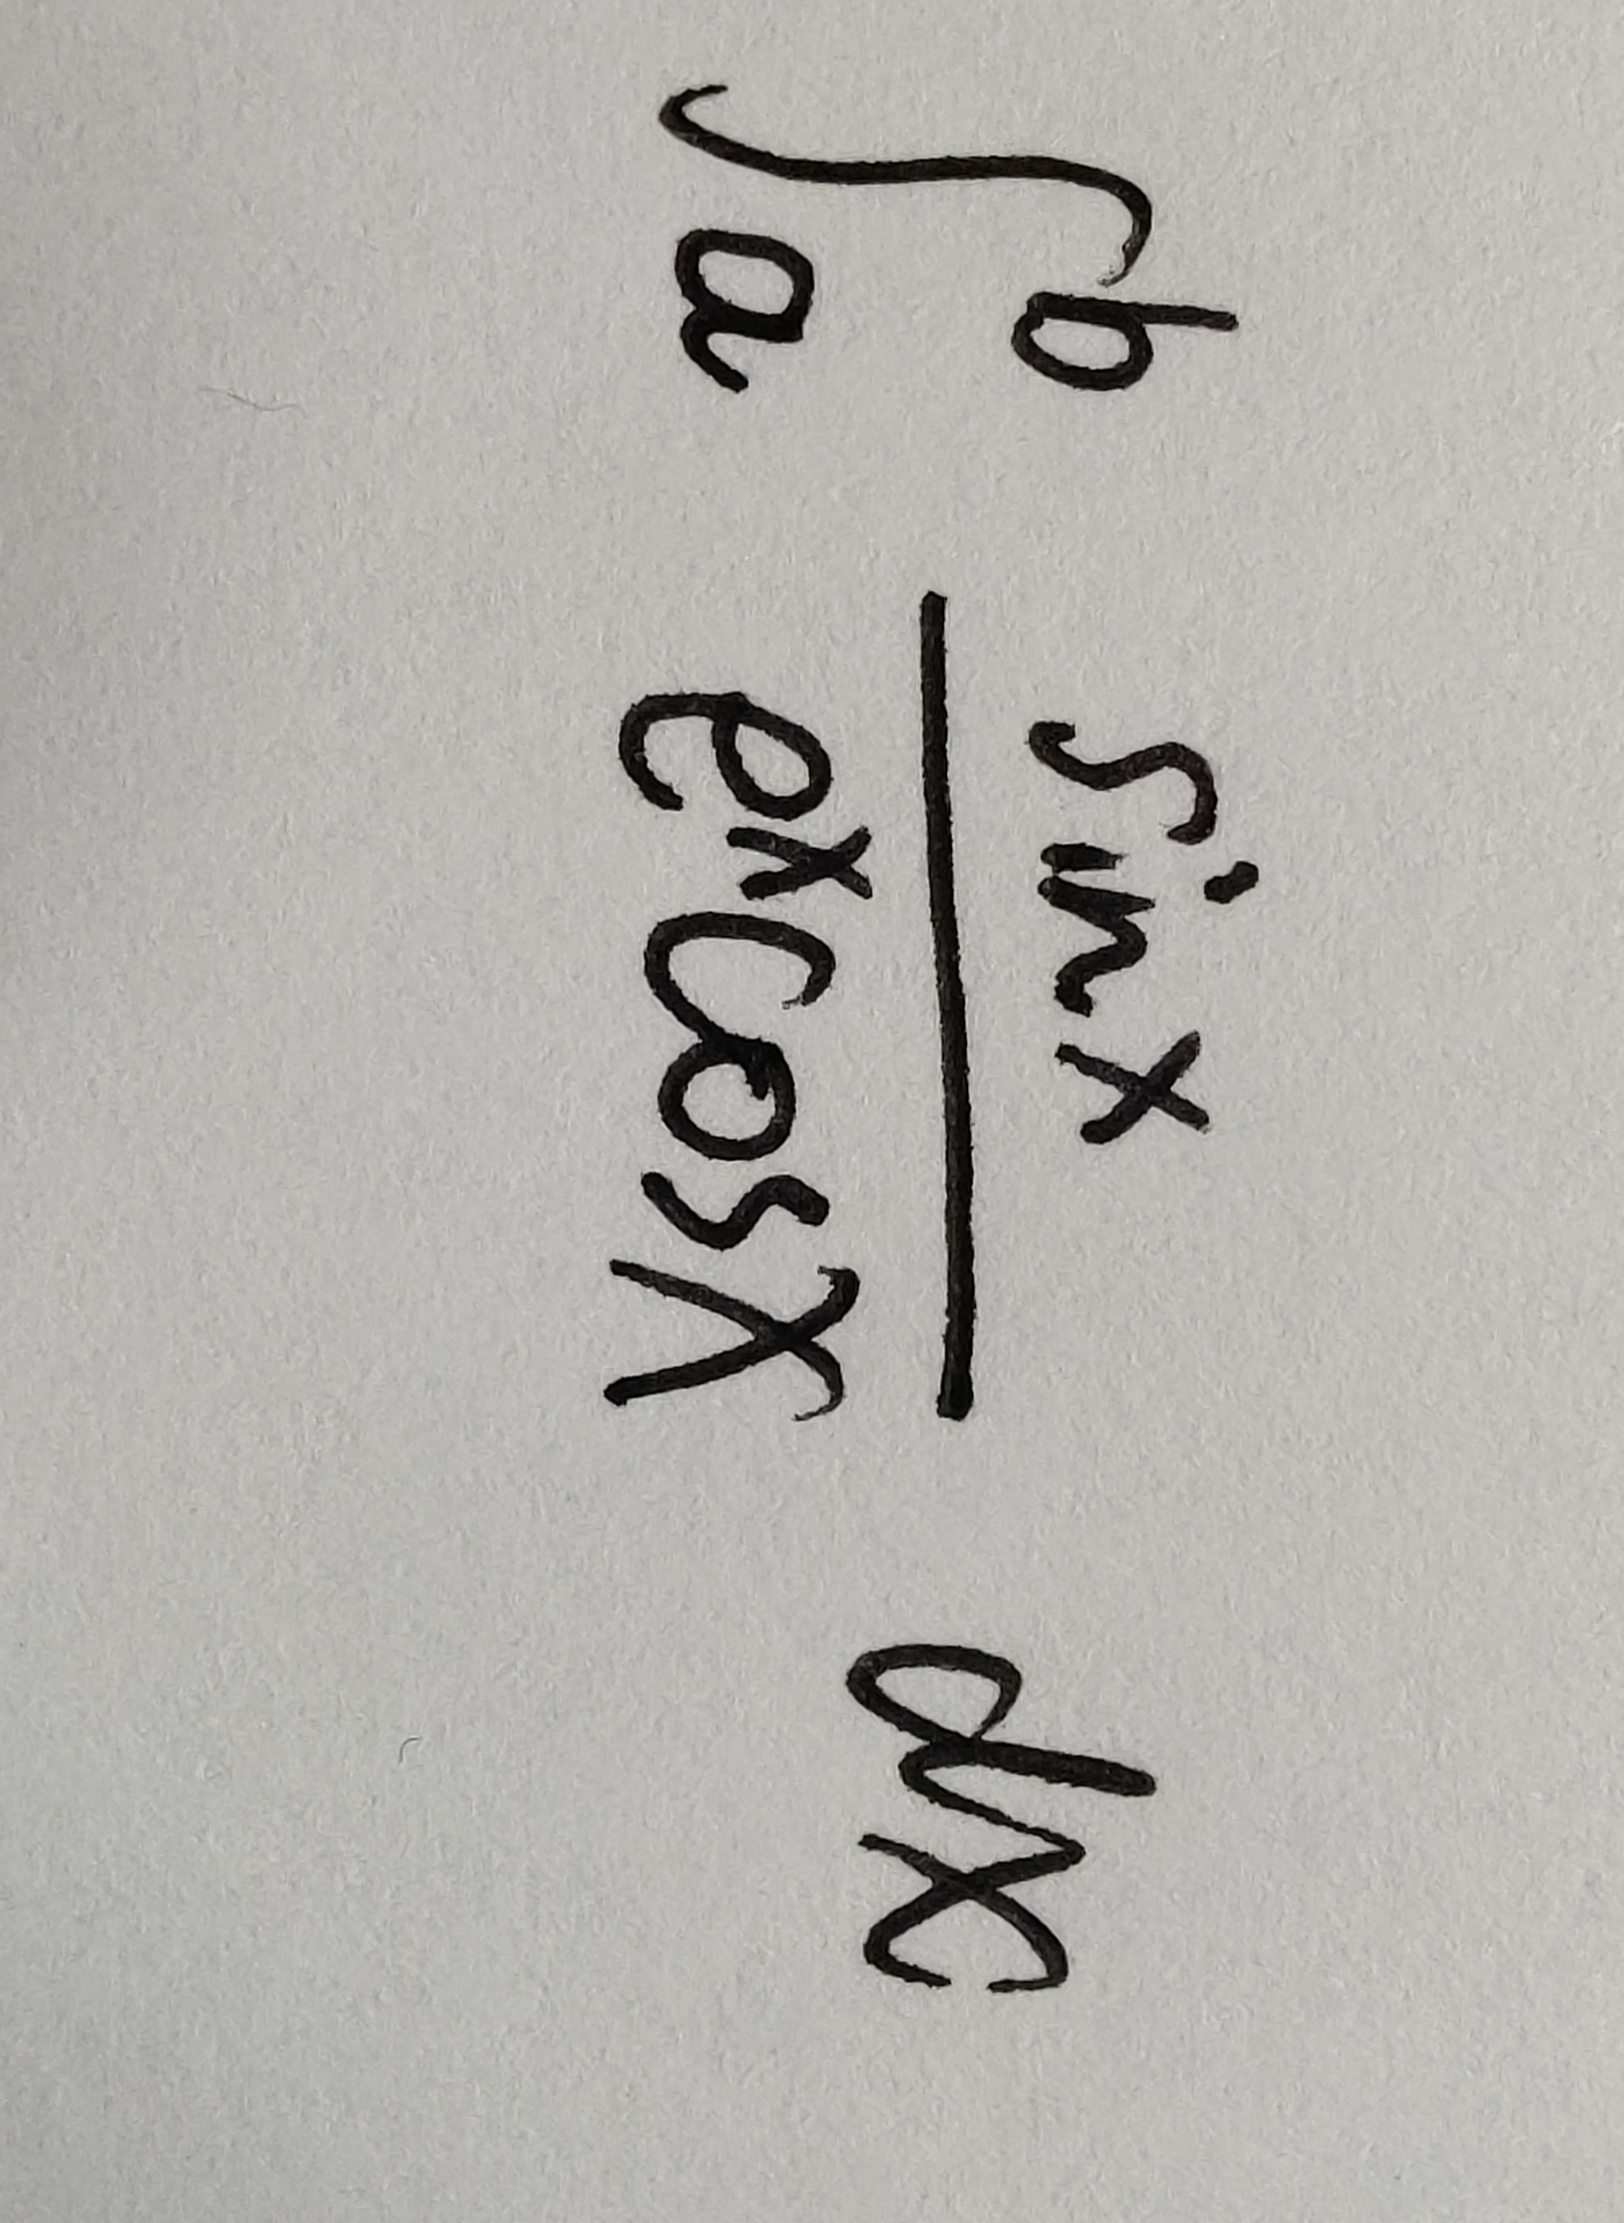 ∫ᵇₐ sin x / eˣ cos x dx